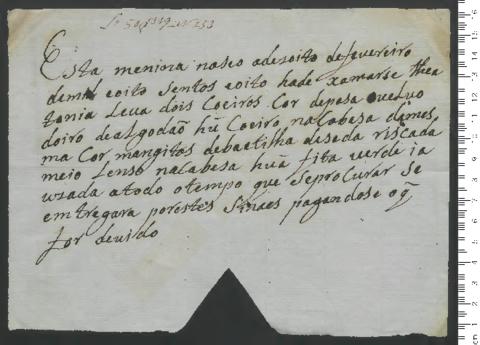 Lº 50 f 319 nº 253
Esta menina naseo adezoito defevereiro
demil eoito sentos eoito hade xamarse thea
tonia Leva dois Coeiros Cor depesa
doiro dealgodaõ hũ Coeiro nacabesa dames
ma Cor mangitos debaetilha deseda riscada
meio Lenso nacabesa huã fita verde ia
uzada atodo otempo que seprocurar se
em tregara porestes sinaes pagandose oq̃
for devido